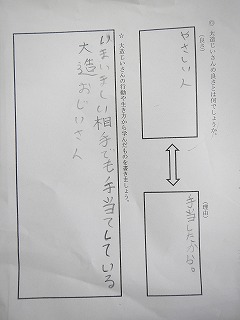 ☆ 大造じいさんの良さとは何でしょうか。
(良さ)
やさしい人
(理由)
手当したから。
☆ 大造じいさんの行動や生き方から学んだものを書きましょう。
いまいましい相手でも手当てしている
大造おじいさん